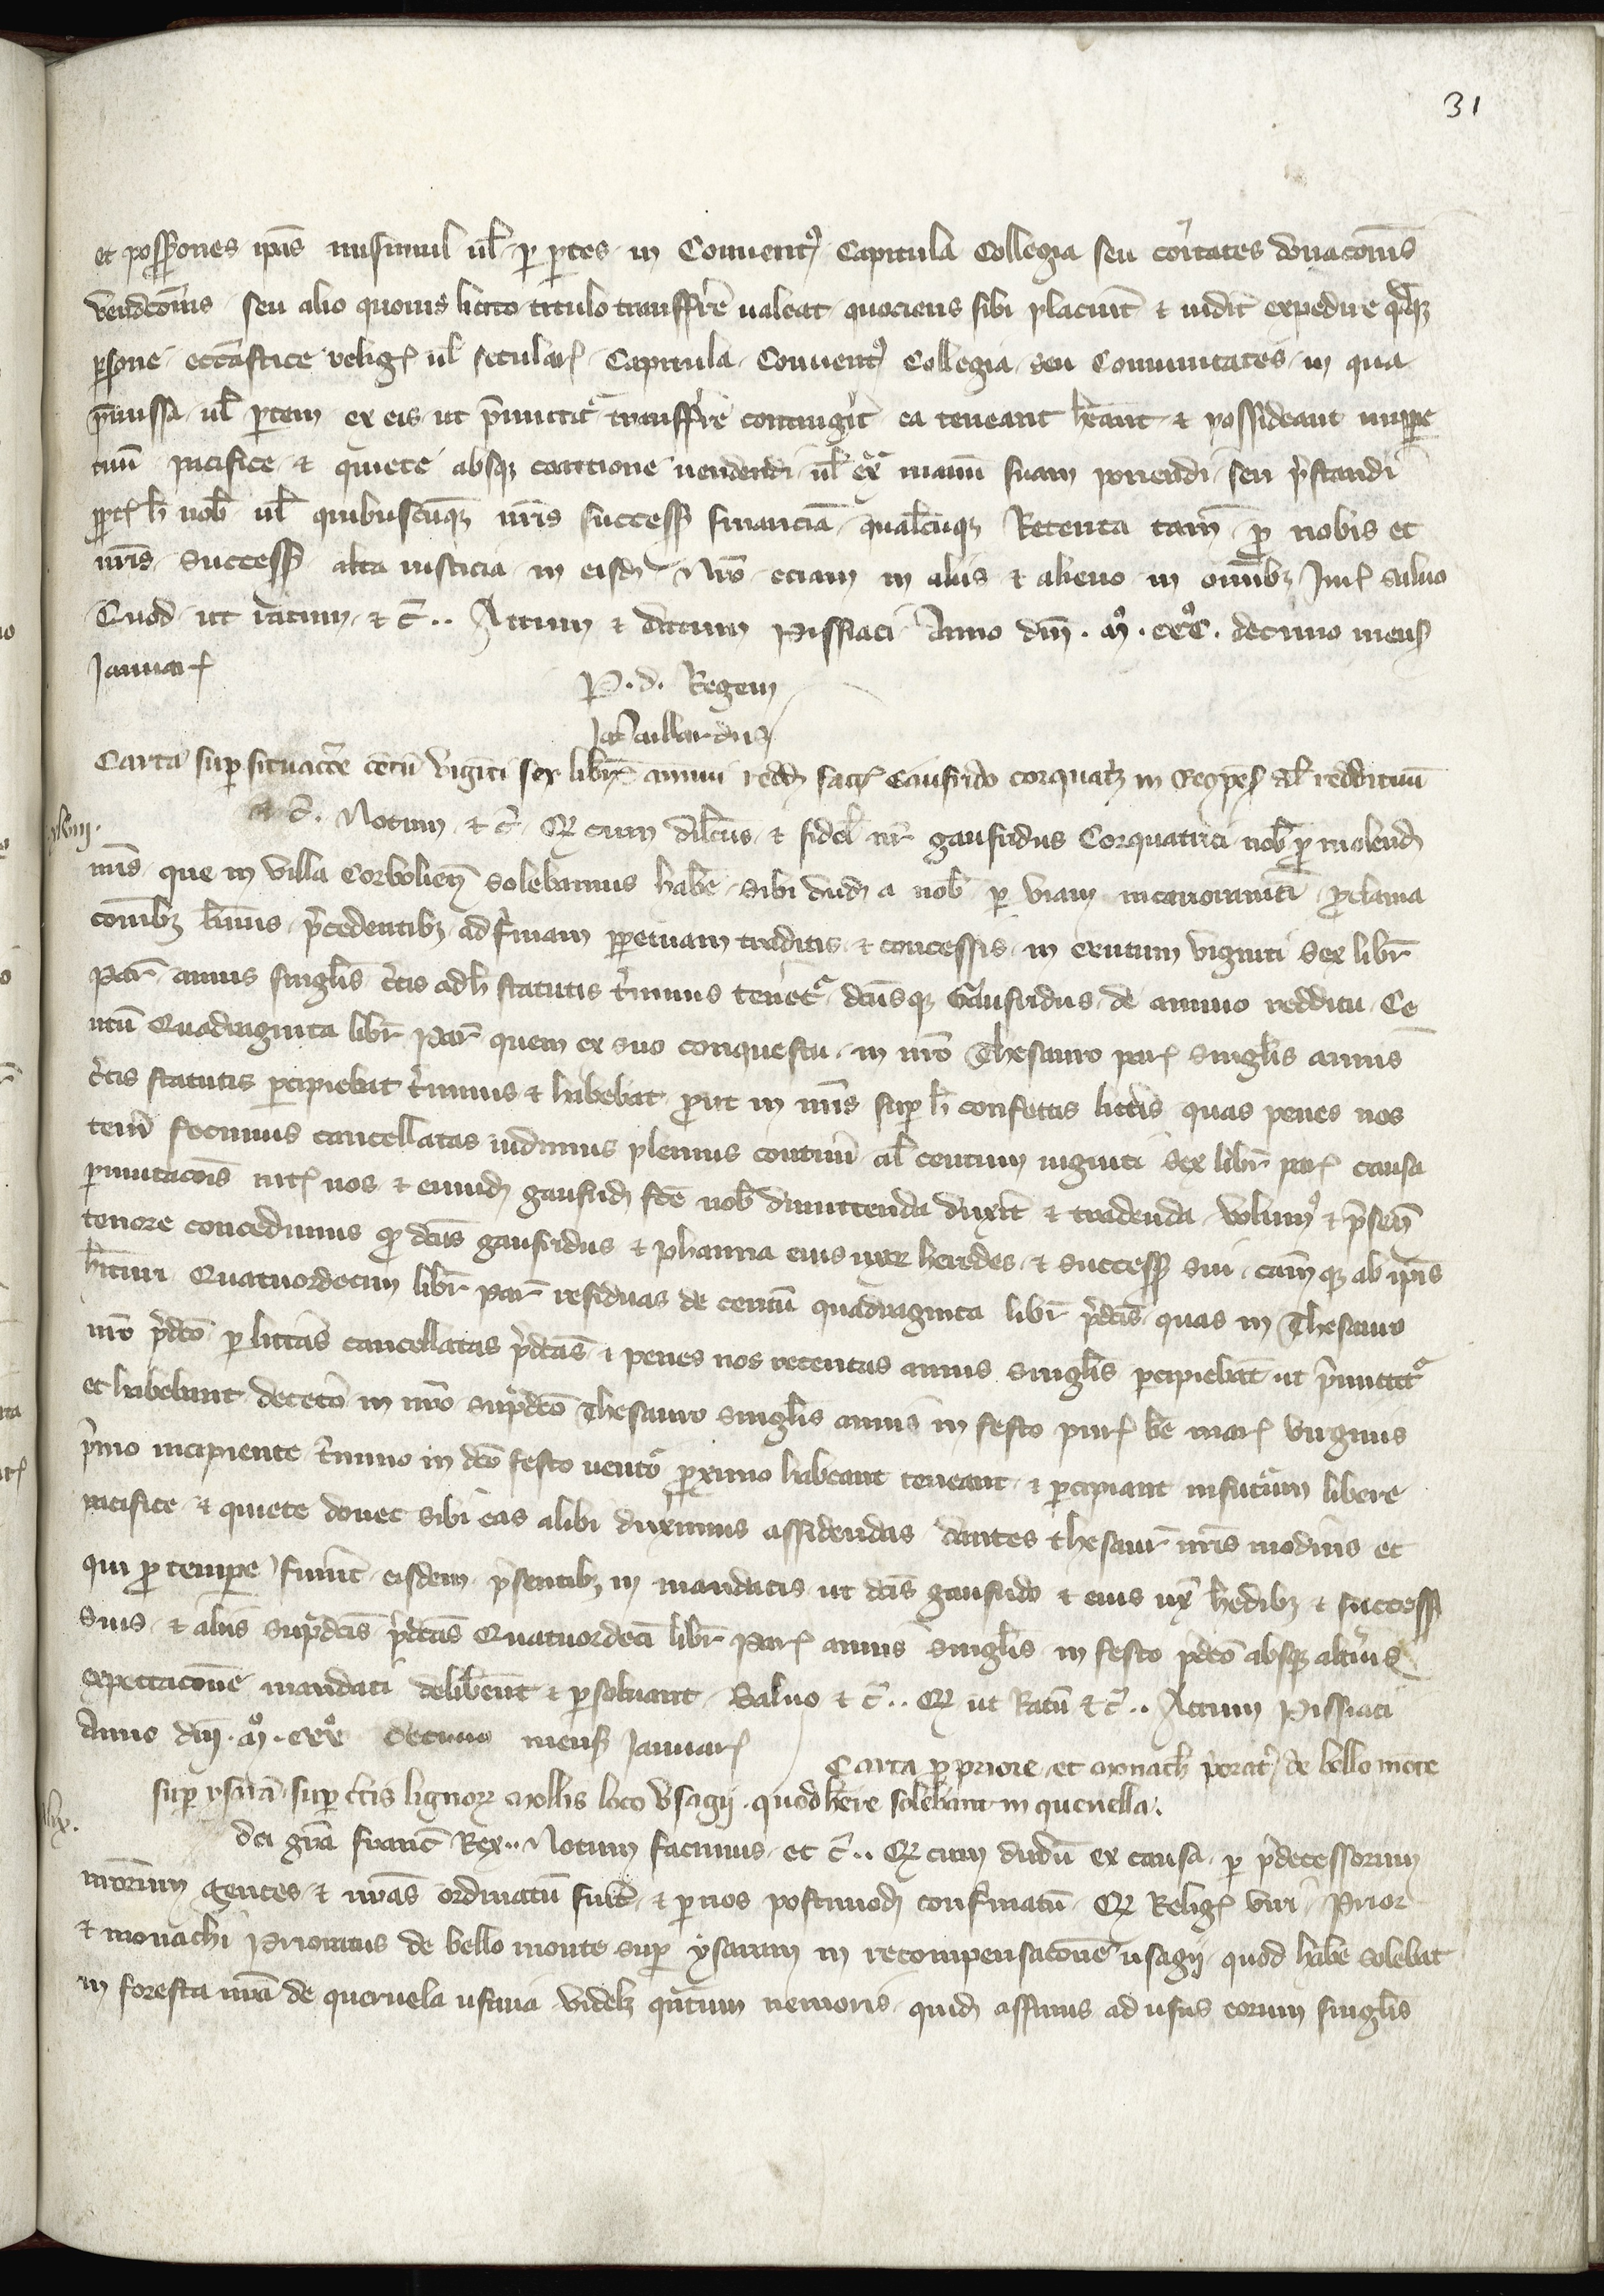 31
et possessiones ipas insimul ul' per partes in Conuent9 Capitula Collegia seu coitates donacois
vendcois seu alio quouis licito titulo transfferre ualeat quociens sibi placuit & uidit expedire
psone eccastice relig ul' secular Capitula Conuent9 Collegia seu Comunitates in qua
pmissa ul' ptem ex eis ut pmittit transfferre contingit ea teneant heant & possideant inppe
tuu pacifice & quiete absq coactione uendendi ul' ex manu suam ponendi seu pstandi
ppt h nob ul' quibuscuq nris success financia qualcuq Retenta tam p nobis et
nris success alta iusticia in eisd Nro eciam in aliis & alieno in omibz iure saluo
Quod ut ratum & c.. Actum & datum Pissiaci Anno dni mo. ccco. decimo mens
Januar
P. d. Regem
Jac Caillardus
Carta sup situacoe centu viginti sex libr annui redd fact Gaufrido corquatrz in redditum
xlviii.
& c. Notum & c. Q cum dilcus & fidel nr gaufridus Corquatrici nob p molend
nis que in villa Corbolien solebamus habe sibi dud a nob p viam incarioramti pclama
conibz bimis pcedentibz ad firmam ppetuam traditis & concessis in centum viginti sex libr
Par annis singlis ctis adh statutis tminis tenet dcusq Gaufridus de annuo redditu Ce
ntu Quadraginta libr Par quem ex suo conquestu in nro Thesauro par singlis annis
ctis statutis pcipiebat tminis & habebat put in nris sup h confectis litteris quas penes nos
teni fecimus cancellatas uidimus plenius contineri centum uiginti sex libr par causa
pmutacois int nos & eumd gaufrid fce nob dimittenda duxit & tradenda volum9 & psen
tenore concedimus q dcus gaufridus & Johanna eius uxor heredes & success sui cam q ab ipis
bitur Quatuordecim libr par residuas de centu quadraginta libr pdcis quas in Thesauro
nro pdco p litteras cancellatas pdcas & penes nos retentas annis singlis pcipiebat ut pmittit
et habebant decetero in nro supdco Thesauro singlis annis in festo pur be mar virginis
pmo incipiente tmino in dco festo uento pximo habeant teneant & pcipiant infuturum libere
pacifice & quiete donec sibi eas alibi duximus assidendas dantes thesaur nris modernis et
qui p tempe fuint eisdem psentibz in mandatis ut dcis gaufrido & eius ux hedibz & success
suis & aliis supdcis pdcas Quatuordeci libr Par annis singlis in festo pdco absq altius
expectacone mandati delibent & psoluant Saluo & c.. Q ut Ratu & c.. Actum Pissiaci
Anno dni mo. ccco decimo mens Januar
Carta p priore et monach porat de bello mote
sup ysara sup ctis lignor mollis loco Usagij quod here solebant in querella.
xlix.
dei gra franc Rex.. Notum facimus et c.. Q cum dudu ex causa p pdecessorum
nrorum gentes & nras ordinatu fuit & p nos postmod confirmatu Q Relig viri Prior
& monachi Prioratus de bello monte sup ysaram in recompensacone usagij quod habe solebat
in foresta nra de queruela usuaia videlz qrtum nemoris quid assimus ad usus eorum singlis